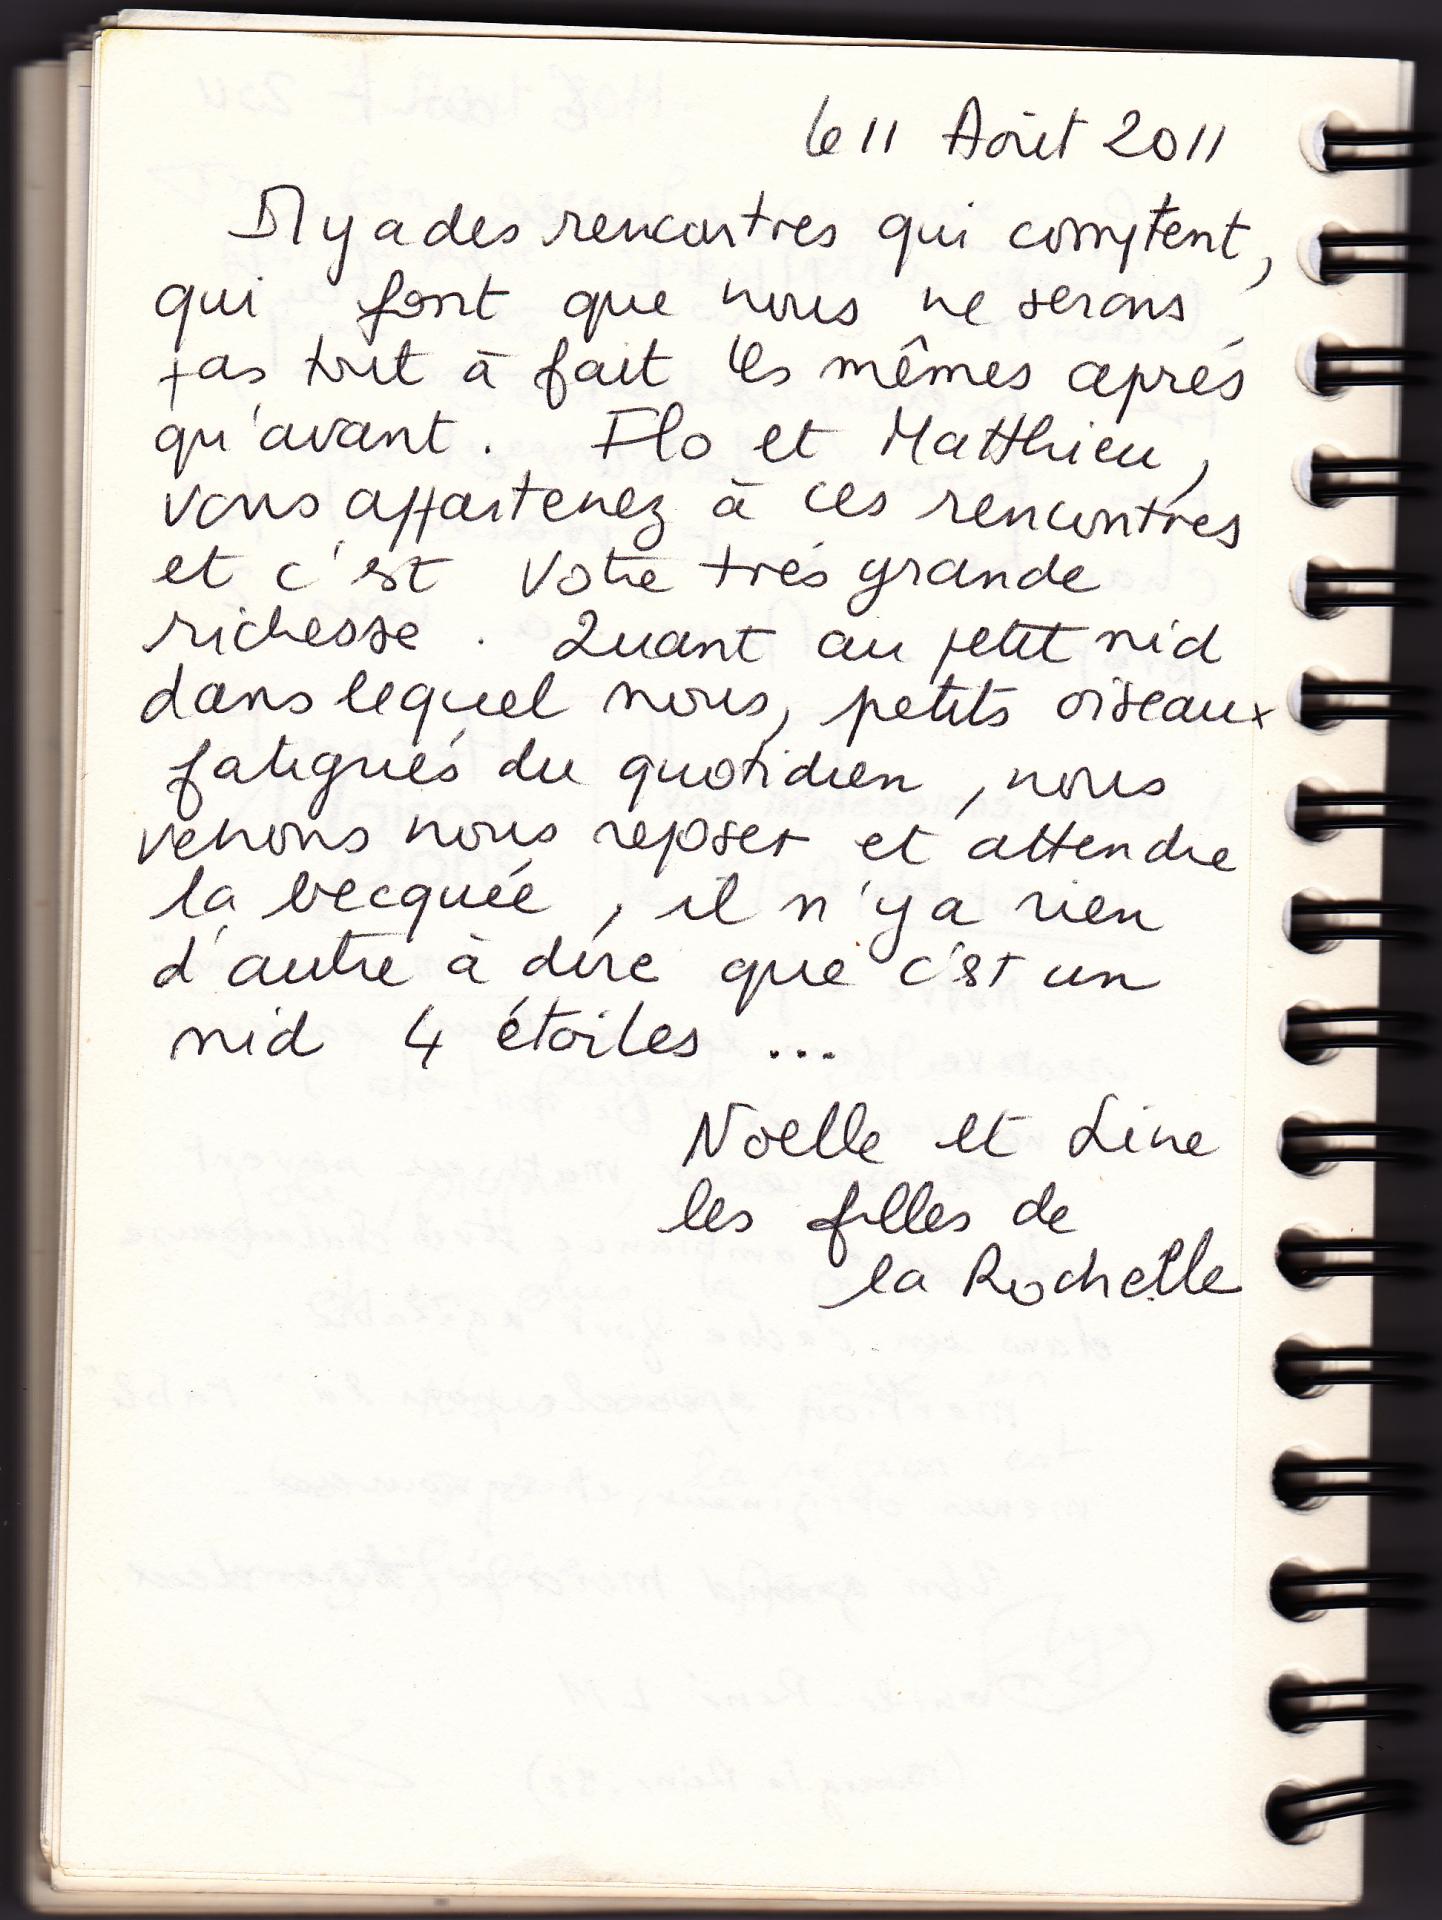 Le 11 Août 2011
Il y a des rencontres qui comptent,
qui font que nous ne serons
pas tout à fait les mêmes après
qu'avant. Flo et Matthieu,
vous appartenez à ces rencontres
et c'est votre très grande
richesse. Quant au petit nid
dans lequel nous, petits oiseaux
fatigués du quotidien, nous
venons nous reposer et attendre
la becquée, il n'y a rien
d'autre à dire que c'est un
nid 4 étoiles ...
Noelle et Line
les filles de
la Rochelle